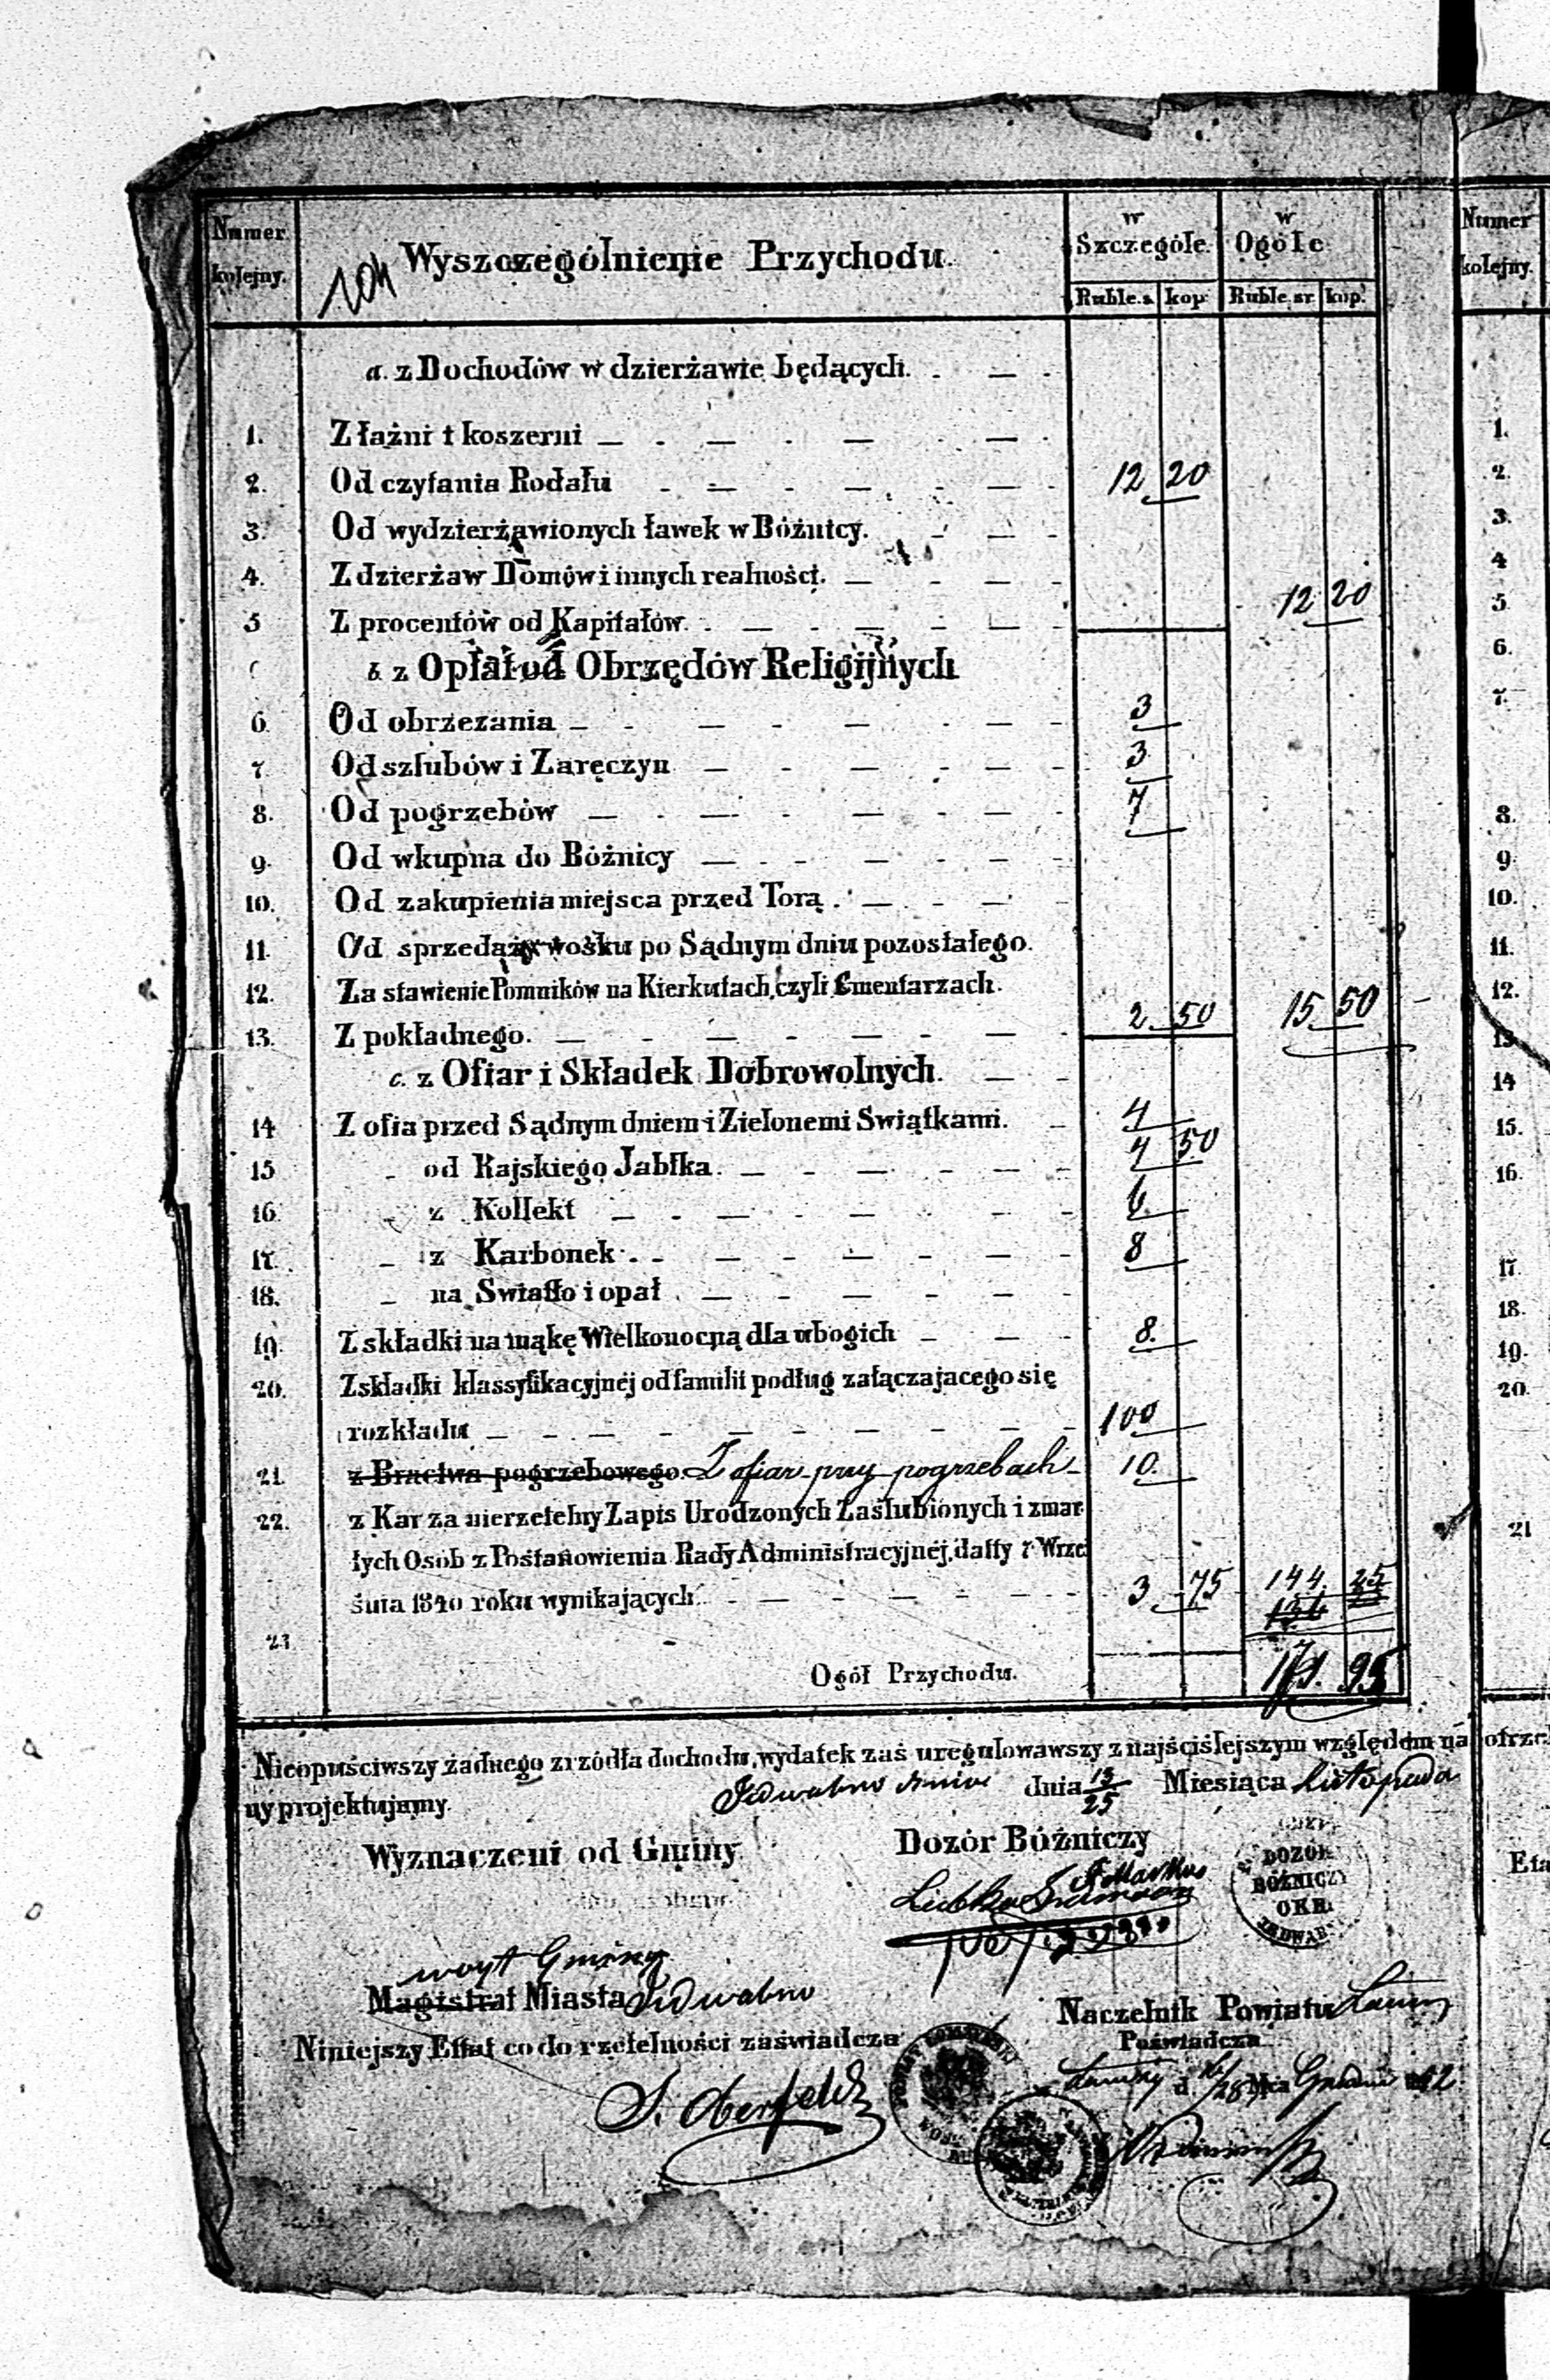 Numer kolejny. Wyszczególnienie Przychodu. w Szczególe. w Ogóle
104
Ruble.s. kop: Ruble sr. kop.
a. z Dochodów w dzierżawie będących.
1. Z łaźni i koszerni
2. Od czytania Rodału 12 20
3. Od wydzierżawionych ławek w Bóżnicy.
4. Z dzierżaw Domów i innych realności.
5 Z procentów od Kapitałów. 12 20
b. z Opłat od Obrzędów Religijnych
6. Od obrzezania 3
7. Od szlubów i Zaręczyn 3
8. Od pogrzebów 7
9. Od wkupna do Bóżnicy
10. Od zakupienia miejsca przed Torą.
11. Od sprzedaży wosku po Sądnym dniu pozostałego.
12. Za stawienie Pomników na Kierkutach, czyli Cmentarzach.
13. Z pokładnego. 2 50 15 50
c. z Ofiar i Składek Dobrowolnych.
14 Z ofia przed Sądnym dniem i Zielonemi Swiątkami. 4
15 od Rajskiego Jabłka. 4 50
16. z Kollekt 6
17. z Karbonek 8
18. na Swiatło i opał
19. Z składki na mąkę Wielkonocną dla ubogich 8.
20. Z składki klassyfikacyjnej od familii podług załączajacego się
rozkładu 100
21 z Bractwa pogrzebowego. Z ofiar przy pogrzebach 10.
22. z Kar za nierzetelny Zapis Urodzonych Zaślubionych i zmar
łych Osób z Postanowienia Rady Administracyjnej, datty 7 Wrze
śnia 1840 roku wynikających 3 75 144 25
134 25
23.
Ogół Przychodu. 171. 95
Nieopuściwszy żadnego zrzódła dochodu, wydatek zaś uregulowawszy z najściślejszym względem na potrze
ny projektujemy. Jedwabno dnia 13/25 Miesiąca Listopada
Wyznaczeni od Gminy Dozór Bóżniczy
DOZÓR
BÓŻNICZY
OKR.
JEDWAB.
woyt Gminy
Magistrat Miasta Jedwabno Naczelnik Powiatu
Niniejszy Ettat co do rzetelności zaświadcza Poświadcza
d. 16/28 Mca Grudnia
S. Oberfeld
Numer
kolejny.
1.
2.
3.
4
5
6.
7.
8.
9.
10.
11.
12.
13
14
15.
16.
17.
18.
19.
20.
21
Eta